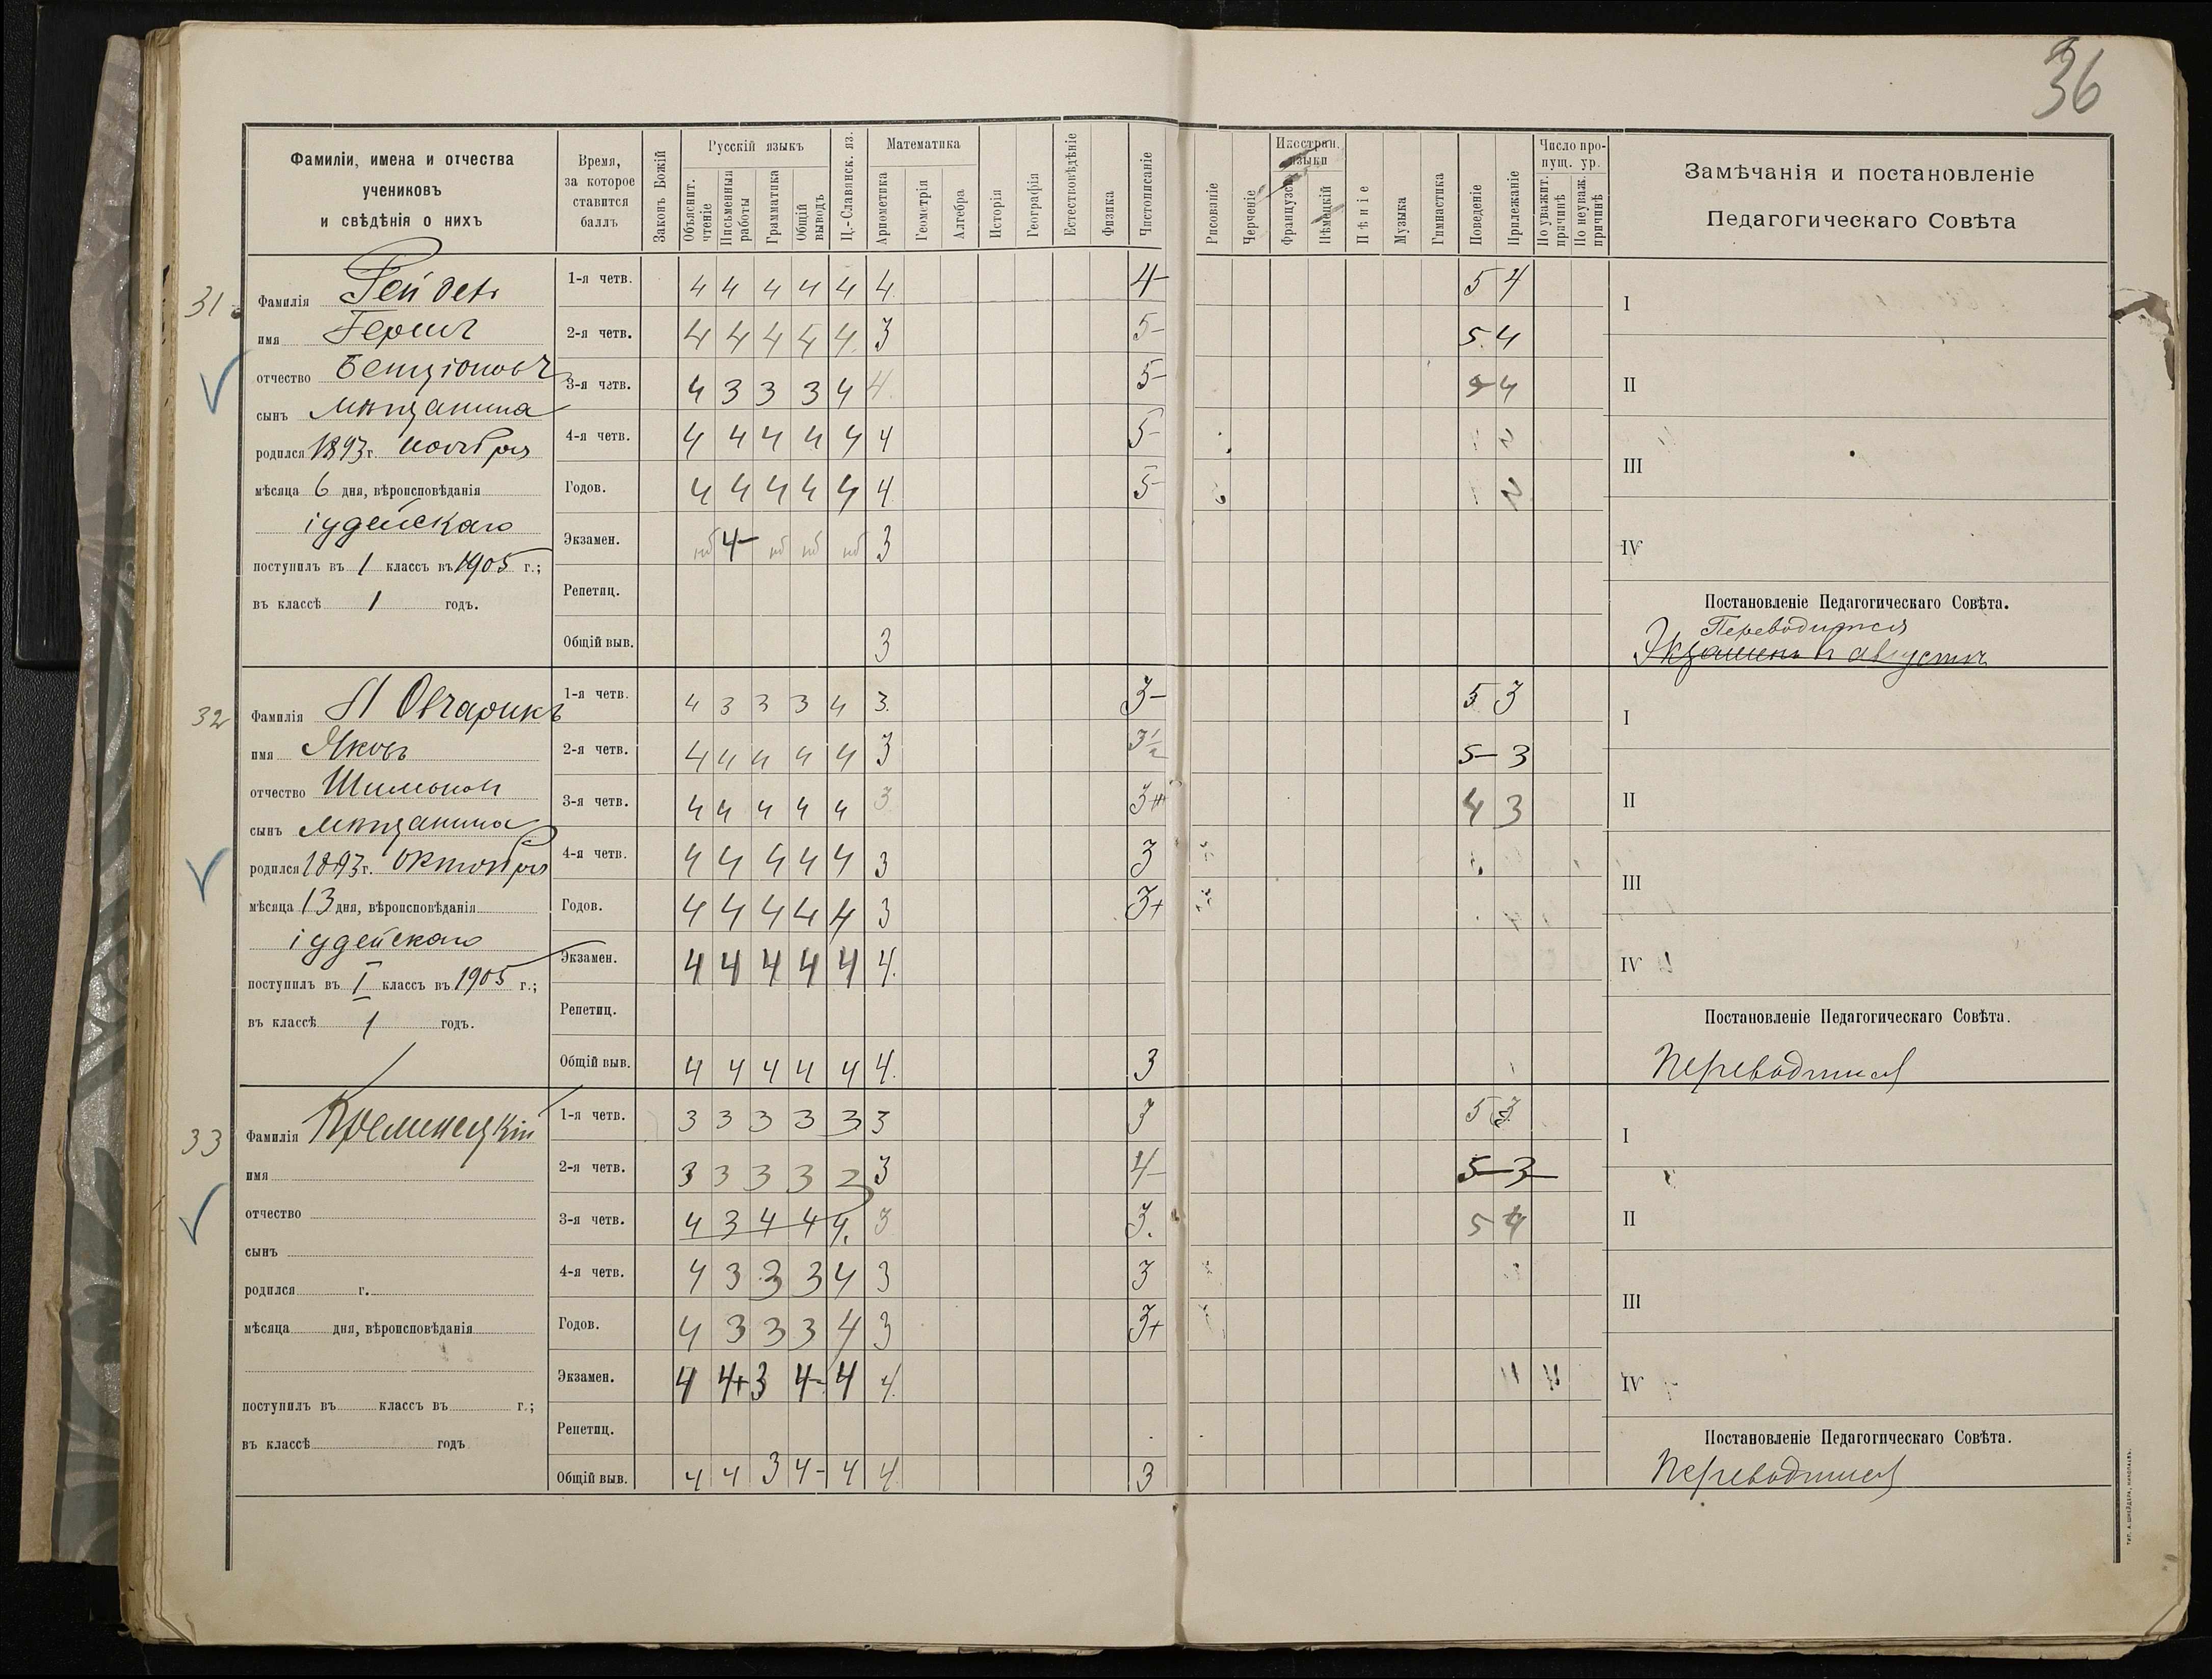 36
Фамиліи, имена и отчества
учениковъ
и свѣдѣнія о нихъ
Время,
за которое
ставится
баллъ
Законъ Божій
Русскій языкъ
Объяснит. чтеніе
Письменныя работы
Грамматика
Общій выводъ
Ц.-Славянск. яз.
Математика
Ариѳметика
Геометрія
Алгебра
Исторія
Географія
Естествовѣдѣніе
Физика
Чистописаніе
Рисованіе
Черченіе
Иностран. языки
Французскій
Нѣмецкій
Пѣніе
Музыка
Гимнастика
Поведеніе
Прилежаніе
Число пропущ. ур.
По уважит. причинѣ
По неуваж. причинѣ
Замѣчанія и постановленіе
Педагогическаго Совѣта
31
Фамилія
имя Герш
отчество Бенціонов
сынъ мѣщанина
родился 1893 г. ноября
мѣсяца 6 дня, вѣроисповѣданія
іудейскаго
поступилъ въ 1 классъ въ 1905 г.;
въ классѣ 1 годъ.
1-я четв. 4 4 4 4 4 4 4- 5 4
2-я четв. 4 4 4 4 4 3 5- 5 4
3-я четв. 4 3 3 3 4 4 5- 5- 4
4-я четв. 4 4 4 4 4 4 5-
Годов. 4 4 4 4 4 4 5-
Экзамен. нб 4- нб нб нб 3
Репетиц.
Общій выв. 3
I
II
III
IV
Постановленіе Педагогическаго Совѣта.
Переводится
Экзаменъ в августѣ
32
Фамилія Овчарикъ
имя Яковъ
отчество Шимонов
сынъ мѣщанина
родился 1893 г. октября
мѣсяца 13 дня, вѣроисповѣданія
іудейскаго
поступилъ въ I классъ въ 1905 г.;
въ классѣ 1 годъ.
1-я четв. 4 3 3 3 4 3 3- 5 3
2-я четв. 4 4 4 4 4 3 3½ 5- 3
3-я четв. 4 4 4 4 4 3 3+ 4 3
4-я четв. 4 4 4 4 4 3 3
Годов. 4 4 4 4 4 3 3+
Экзамен. 4 4 4 4 4 4.
Репетиц.
Общій выв. 4 4 4 4 4 4. 3
I
II
III
IV
Постановленіе Педагогическаго Совѣта.
Переводится
33
Фамилія Кременецкій
имя
отчество
сынъ
родился г.
мѣсяца дня, вѣроисповѣданія
поступилъ въ классъ въ г.;
въ классѣ годъ
1-я четв. 3 3 3 3 3 3 3 5 3
2-я четв. 3 3 3 3 2 3 4- 5- 3
3-я четв. 4 3 4 4 4. 3 3. 5 4
4-я четв. 4 3 3 3 4 3 3
Годов. 4 3 3 3 4 3 3+
Экзамен. 4 4+ 3 4- 4 4.
Репетиц.
Общій выв. 4 4 3 4- 4 4. 3
I
II
III
IV
Постановленіе Педагогическаго Совѣта.
Переводится
ТИП. А. ШНЕЙДЕРА, НИКОЛАЕВЪ.